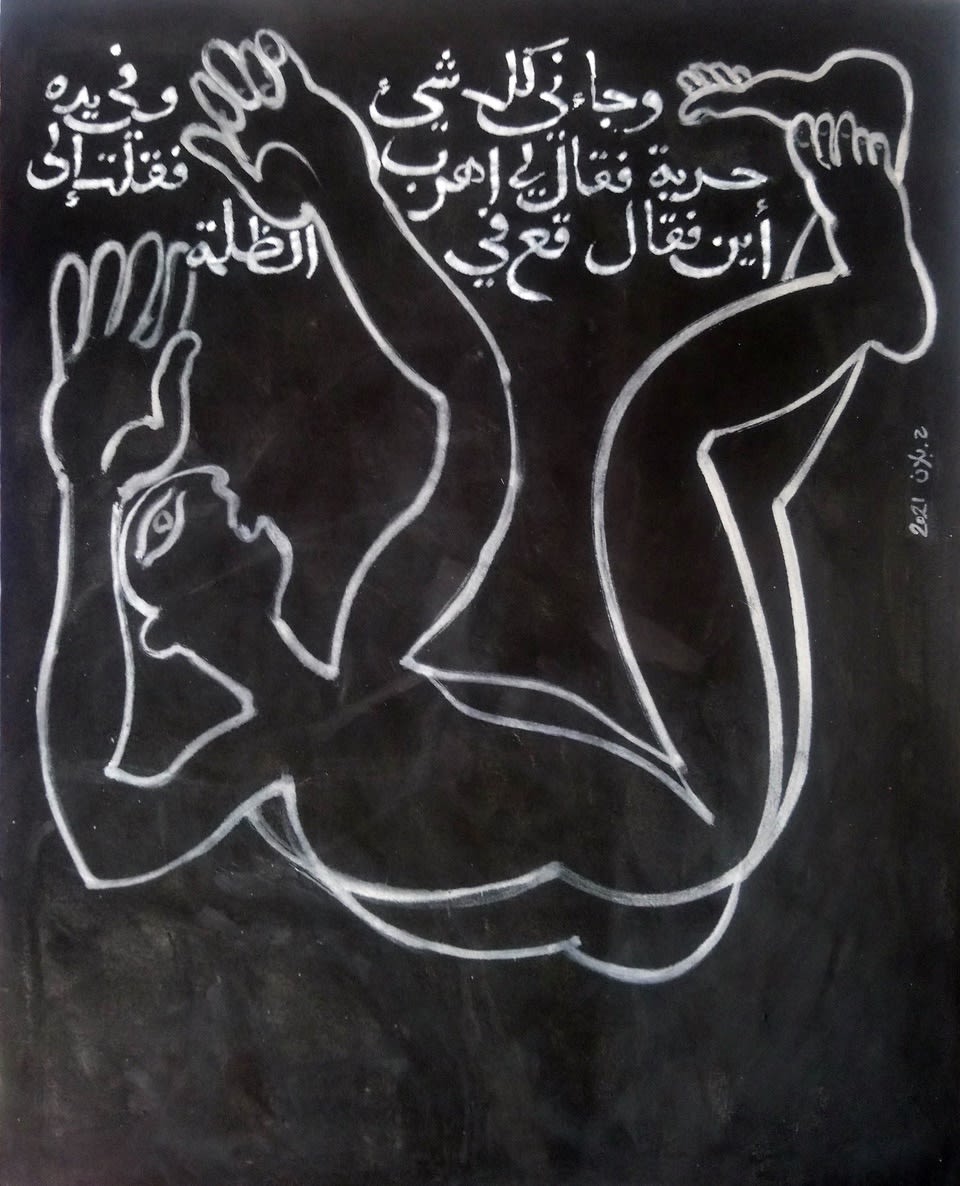 وجاءني كل شيء وفي يده
حربة فقال لي اهرب فقلت إلى
أين فقال قع في الظلمة
2021